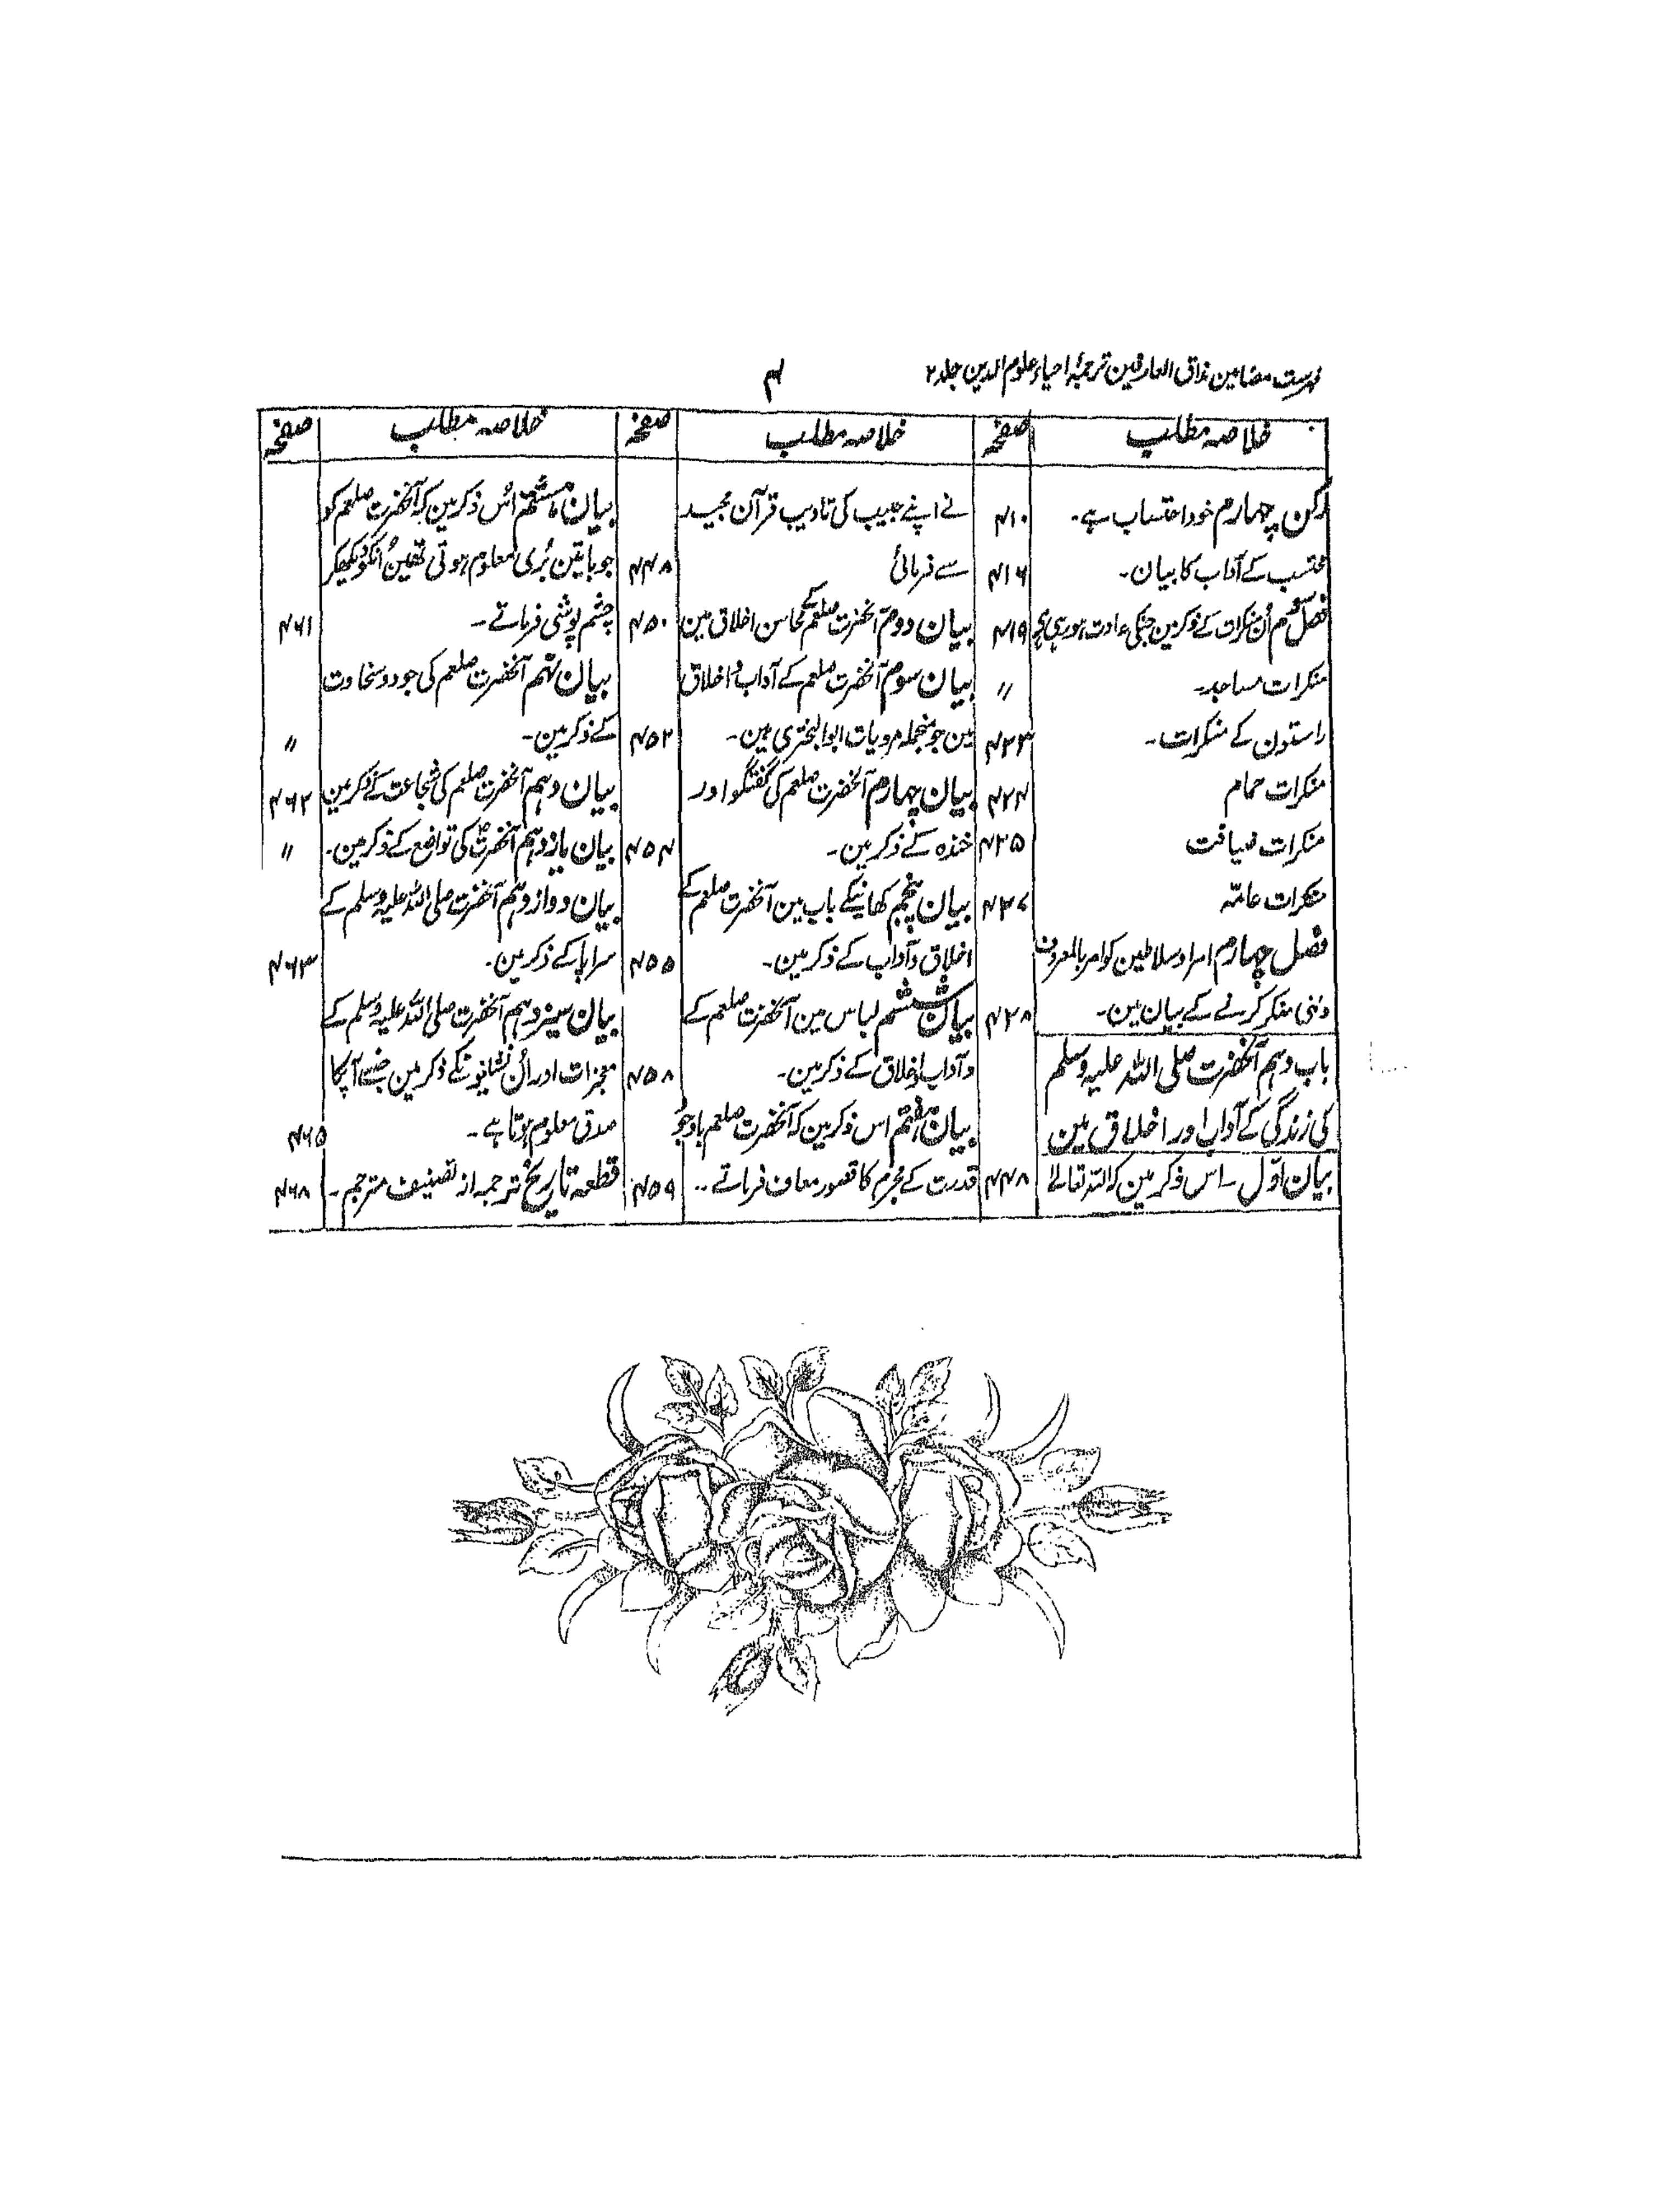 فہرست مضامین مذاق العارفین ترجمۂ احیاء علوم الدین جلد ۲
۴
خلاصہ مطلب
صفحہ
خلاصہ مطلب
صفحہ
خلاصہ مطلب
صفحہ
رکن چہارم خود احتساب ہے۔
۴۱۰
محتسب کے آداب کا بیان۔
۴۱۶
فصل سوم اُن منکرات کے ذکر مین جنکی عادت ہو رہی ہے
۴۱۹
منکرات مساجد۔
〃
راستون کے منکرات۔
۴۲۳
منکرات حمام
۴۲۴
منکرات ضیافت
۴۲۵
منکرات عامّہ
۴۲۷
فصل چہارم امرا و سلاطین کو امر بالمعروف
ونہی منکر کرنے کے بیان مین۔
۴۲۸
باب دہم آنحضرت صلی اللہ علیہ وسلم
کی زندگی کے آداب اور اخلاق مین
بیان اوّل ۔ اس ذکر مین کہ اللہ تعالےٰ
۴۴۸
نے اپنے حبیب کی تادیب قرآن مجید
سے فرمائی
۴۴۸
بیان دوم آنحضرت صلعم کے محاسن اخلاق مین
۴۵۰
بیان سوم آنحضرت صلعم کے آداب و اخلاق
مین جو منجملہ مرویات ابوالبختری ہین۔
۴۵۲
بیان چہارم آنحضرت صلعم کی گفتگو اور
خندہ کے ذکر مین۔
۴۵۴
بیان پنجم کھانیکے باب مین آنحضرت صلعم کے
اخلاق و آداب کے ذکر مین۔
۴۵۵
بیان ششم لباس مین آنحضرت صلعم کے
و آداب اخلاق کے ذکر مین۔
۴۵۸
بیان ہفتم اس ذکر مین کہ آنحضرت صلعم باوجود
قدرت کے مجرم کا قصور معاف فرماتے ۔۔
۴۵۹
بیان ہشتم اُس ذکر مین کہ آنحضرت صلعم کو
جو باتین بُری معلوم ہوتی تھین اُنکو دیکھکر
چشم پوشی فرماتے ۔
۴۶۱
بیان نہم آنحضرت صلعم کی جود و سخاوت
کے ذکر مین۔
〃
بیان دہم آنحضرت صلعم کی شجاعت کے ذکر مین
۴۶۲
بیان یازدہم آنحضرتؐ کی تواضع کے ذکر مین۔
〃
بیان دوازدہم آنحضرت صلی اللہ علیہ وسلم کے
سراپا کے ذکر مین۔
۴۶۳
بیان سیزدہم آنحضرت صلی اللہ علیہ وسلم کے
معجزات اور اُن نشانیونکے ذکر مین جنسے آپکا
صدق معلوم ہوتا ہے ۔
۴۶۵
قطعہ تاریخ ترجمہ از تصنیف مترجم ۔
۴۶۸